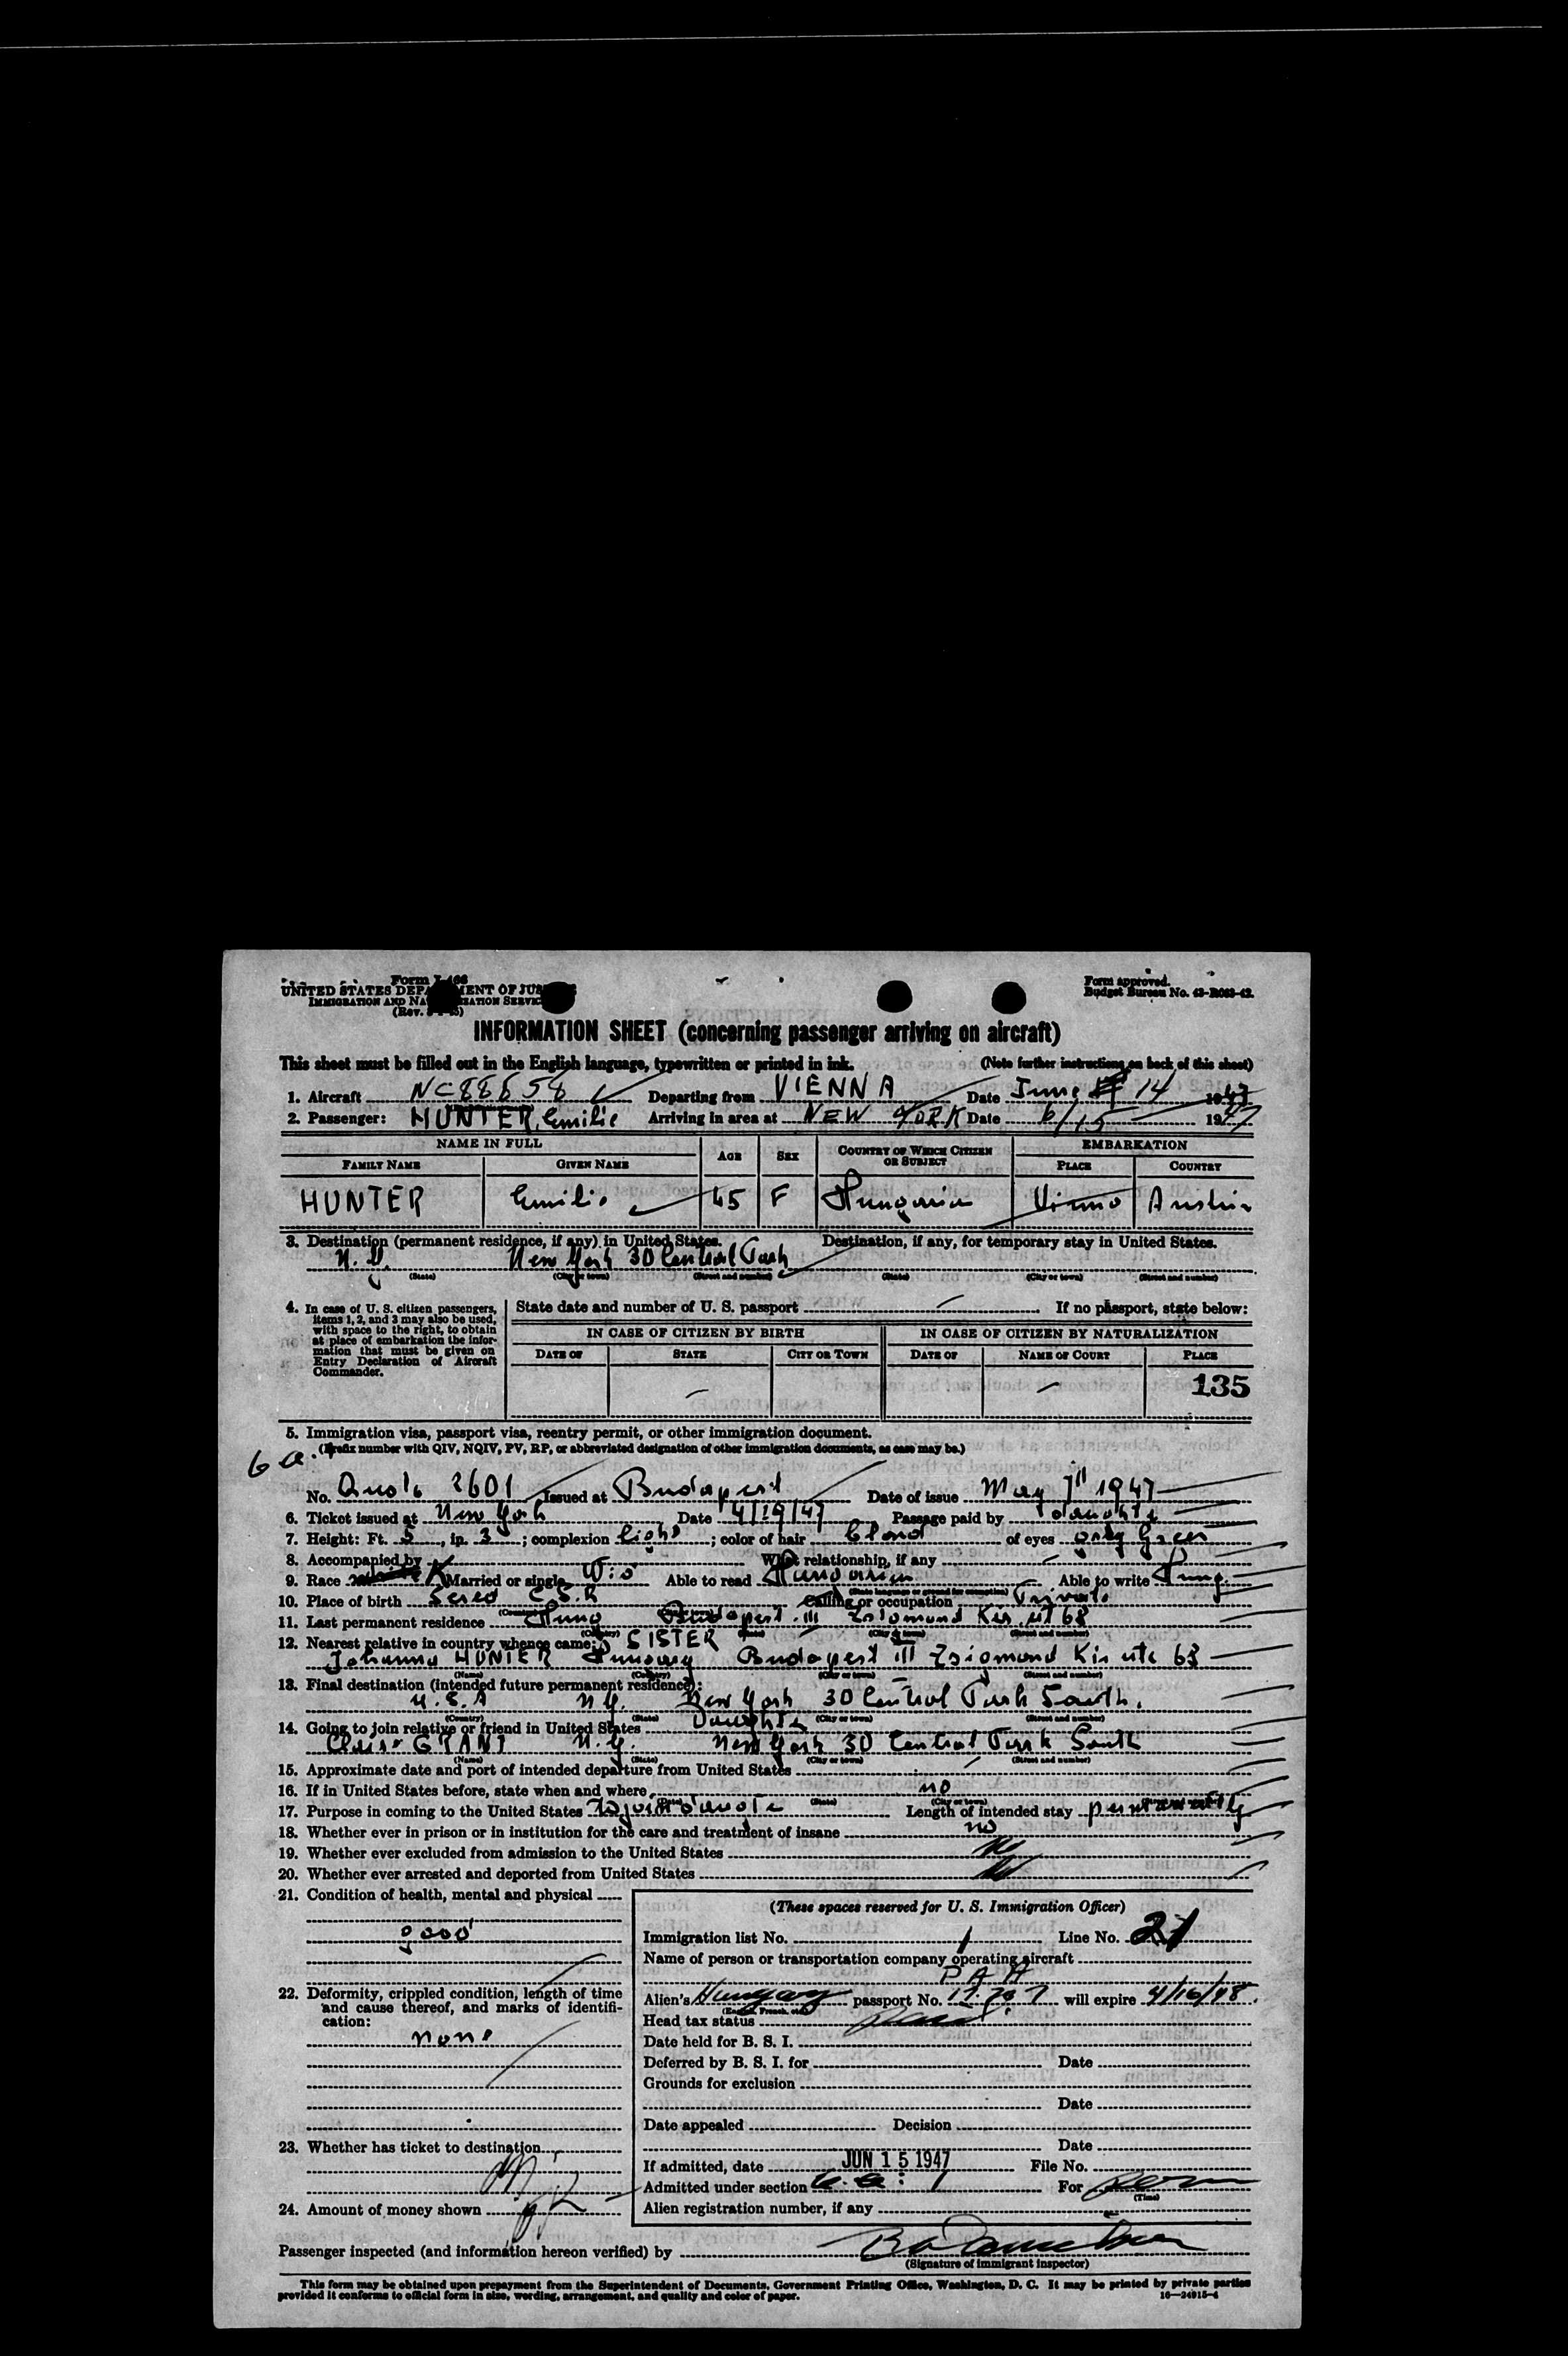 Form I-466
UNITED STATES DEPARTMENT OF JUSTICE
IMMIGRATION AND NATURALIZATION SERVICE
(Rev.
Form approved.
Budget Bureau No. 43-R063-42.
INFORMATION SHEET (concerning passenger arriving on aircraft)
This sheet must be filled out in the English language, typewritten or printed in ink. (Note further instructions on back of this sheet)
1. Aircraft NC88858 Departing from VIENNA Date June 14 1947
2. Passenger: HUNTER, Emilie Arriving in area at NEW YORK Date 6/15 1947
NAME IN FULL AGE SEX COUNTRY OF WHICH CITIZEN OR SUBJECT EMBARKATION
FAMILY NAME GIVEN NAME PLACE COUNTRY
HUNTER Emilie 45 F Hungaria Vienna Austria
3. Destination (permanent residence, if any) in United States. Destination, if any, for temporary stay in United States.
N.Y. New York 30 Central Park
(State) (City or town) (Street and number) (State) (City or town) (Street and number)
4. In case of U. S. citizen passengers, items 1, 2, and 3 may also be used, with space to the right, to obtain at place of embarkation the information that must be given on Entry Declaration of Aircraft Commander.
State date and number of U. S. passport If no passport, state below:
IN CASE OF CITIZEN BY BIRTH IN CASE OF CITIZEN BY NATURALIZATION
DATE OF STATE CITY OR TOWN DATE OF NAME OF COURT PLACE
135
5. Immigration visa, passport visa, reentry permit, or other immigration document.
(Prefix number with QIV, NQIV, PV, RP, or abbreviated designation of other immigration documents, as case may be.)
6 a.
No. Quota 2601 Issued at Budapest Date of issue May 7 1947
6. Ticket issued at New York Date 4/19/47 Passage paid by daughte
7. Height: Ft. 5, in. 3; complexion light; color of hair blond of eyes Green
8. Accompanied by What relationship, if any
9. Race Married or single Wid Able to read Hungarian Able to write Hung.
(State language or ground for exemption)
10. Place of birth Sered C.S.R Calling or occupation Private
11. Last permanent residence Hung Budapest III Zsigmond Kir. ut 68
(Country) (State) (City or town) (Street and number)
12. Nearest relative in country whence came: SISTER
Johanna HUNTER Hungary Budapest III Zsigmond Kir utc 63
(Name) (Country) (City or town) (Street and number)
13. Final destination (intended future permanent residence):
U.S.A N.Y. New York 30 Central Park South.
(Country) (State) (City or town) (Street and number)
14. Going to join relative or friend in United States Daughte
GRANT N.Y. New York 30 Central Park South
(Name) (State) (City or town) (Street and number)
15. Approximate date and port of intended departure from United States
16. If in United States before, state when and where no
(Date) (State) (City or town) (Street and number)
17. Purpose in coming to the United States To join daughte Length of intended stay permanently
18. Whether ever in prison or in institution for the care and treatment of insane no
19. Whether ever excluded from admission to the United States No
20. Whether ever arrested and deported from United States No
21. Condition of health, mental and physical
good
22. Deformity, crippled condition, length of time and cause thereof, and marks of identification:
none
23. Whether has ticket to destination
24. Amount of money shown
(These spaces reserved for U. S. Immigration Officer)
Immigration list No. 1 Line No. 21
Name of person or transportation company operating aircraft
P A A
Alien's Hungary passport No. will expire 4/16/48.
(English, French, etc.)
Head tax status
Date held for B. S. I.
Deferred by B. S. I. for Date
Grounds for exclusion
Date
Date appealed Decision
Date
If admitted, date JUN 15 1947 File No.
Admitted under section 6.a.1 For perm
(Time)
Alien registration number, if any
Passenger inspected (and information hereon verified) by
(Signature of immigrant inspector)
This form may be obtained upon prepayment from the Superintendent of Documents, Government Printing Office, Washington, D. C. It may be printed by private parties
provided it conforms to official form in size, wording, arrangement, and quality and color of paper. 16—24915-4